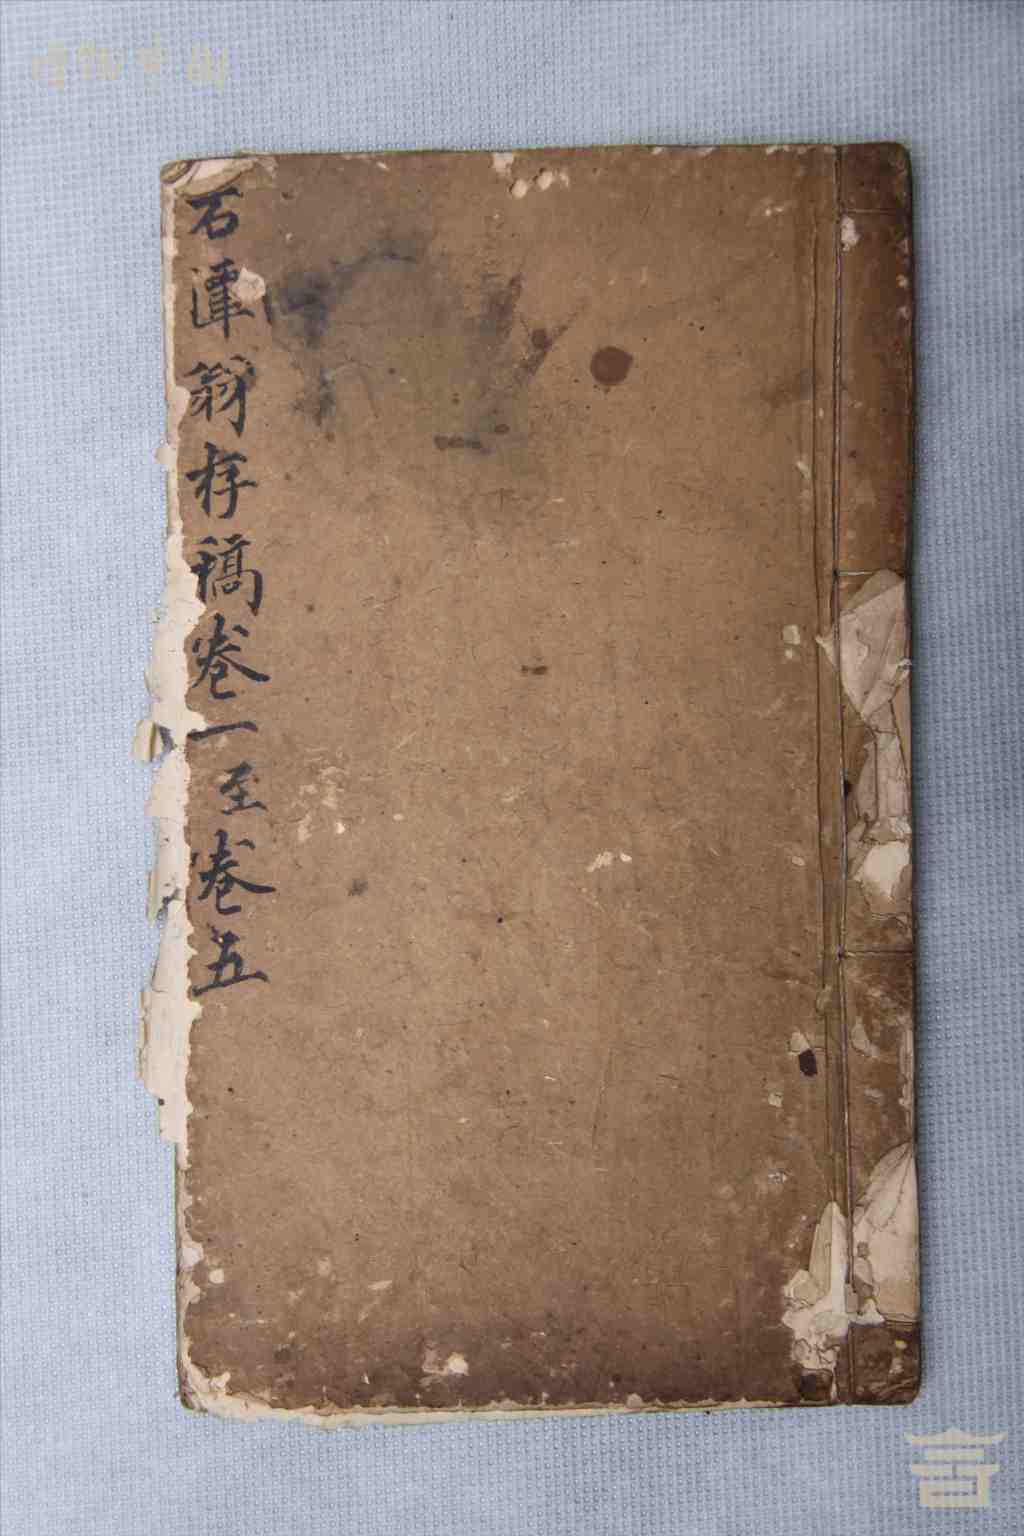 石潭翁存稿卷一至卷五